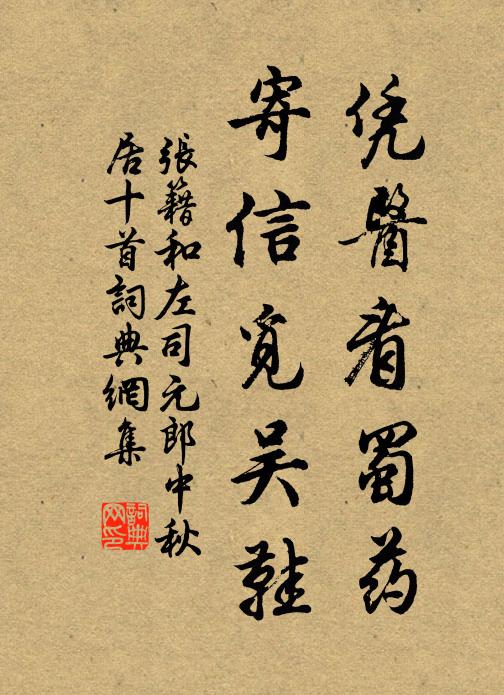 凭醫看蜀药
寄信覓吴鞋
張籍和左司元郎中秋
居十首詞典網集
詞典
网印